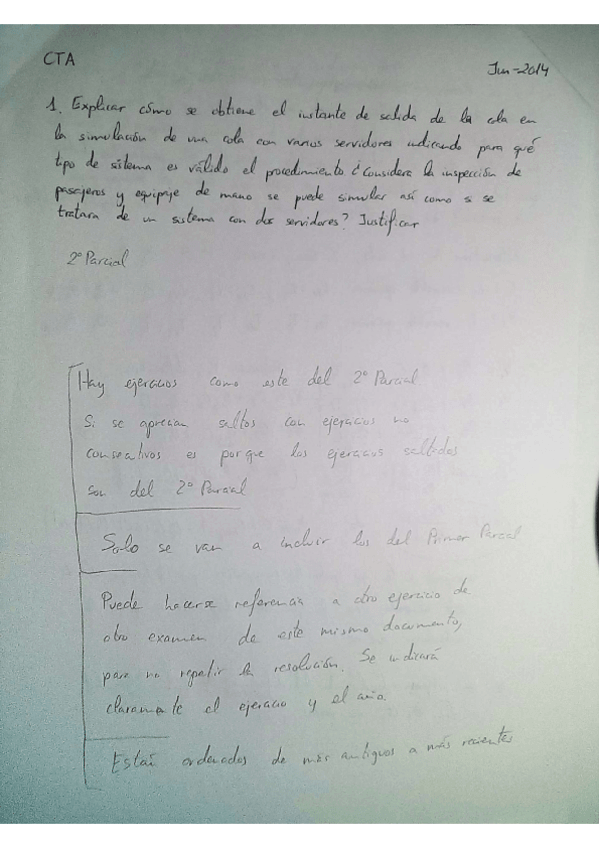 CTA
Jun-2014
1. Explicar cómo se obtiene el instante de salida de la cola en
la simulación de una cola con varios servidores indicando para qué
tipo de sistema es válido el procedimiento ¿Considera la inspección de
pasajeros y equipaje de mano se puede simular así como si se
tratara de un sistema con dos servidores? Justificar
2º Parcial
Hay ejercicios como este del 2º Parcial.
Si se aprecian saltos con ejercicios no
consecutivos es porque los ejercicios saltados
son del 2º Parcial
Solo se van a incluir los del Primer Parcial
Puede hacerse referencia a otro ejercicio de
otro examen de este mismo documento,
para no repetir la resolución. Se indicará
claramente el ejercicio y el año.
Están ordenados de más antiguos a más recientes